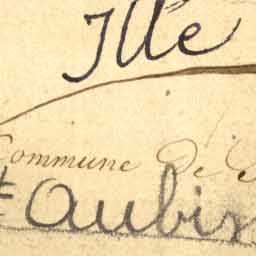 Ille
Commune de S
t Aubin